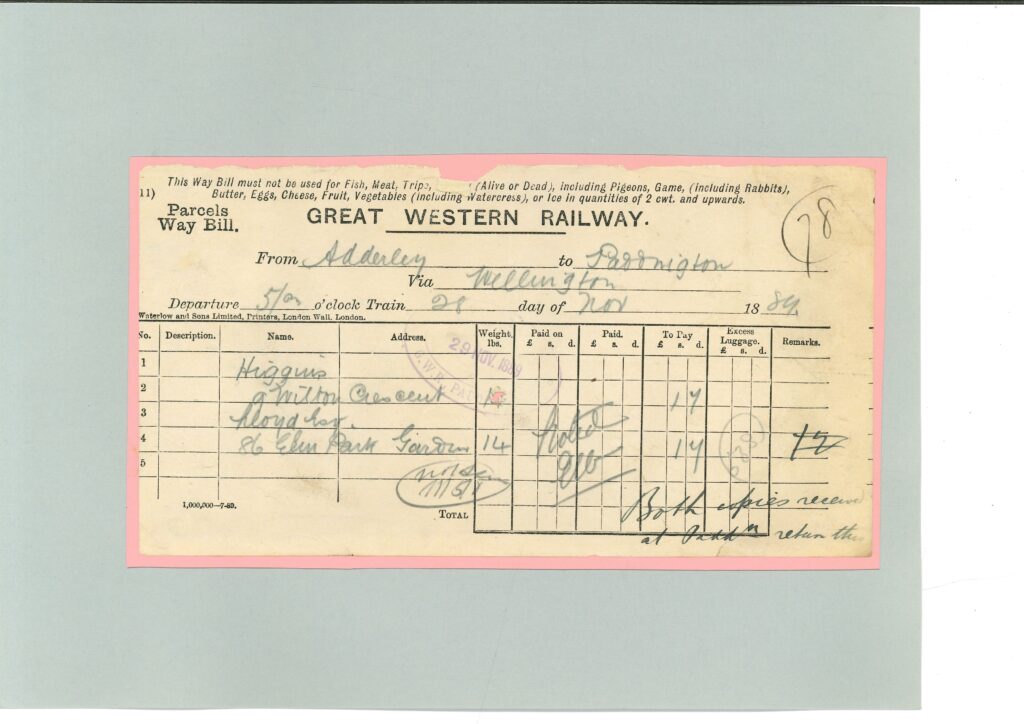 This Way Bill must not be used for Fish, Meat, Tripe, (Alive or Dead), including Pigeons, Game, (including Rabbits),
11) Butter, Eggs, Cheese, Fruit, Vegetables (including Watercress), or Ice in quantities of 2 cwt. and upwards.
Parcels
Way Bill.
GREAT WESTERN RAILWAY.
78
From Adderley to Paddington
Via Wellington
Departure 5/ o'clock Train 28 day of Nov 1889
Waterlow and Sons Limited, Printers, London Wall, London.
No. Description. Name. Address. Weight. lbs. Paid on £ s. d. Paid. £ s. d. To Pay £ s. d. Excess Luggage. £ s. d. Remarks.
29 NOV. 1889
G.W.R.
1 Higgins
2 9 Wilton Crescent 14 1 7
3 Lloyd Esq.
4 86 Elm Park Gardens 14 Noted 1 7
5
1,000,000—7-89.
TOTAL
Both copies received
at Paddn return this